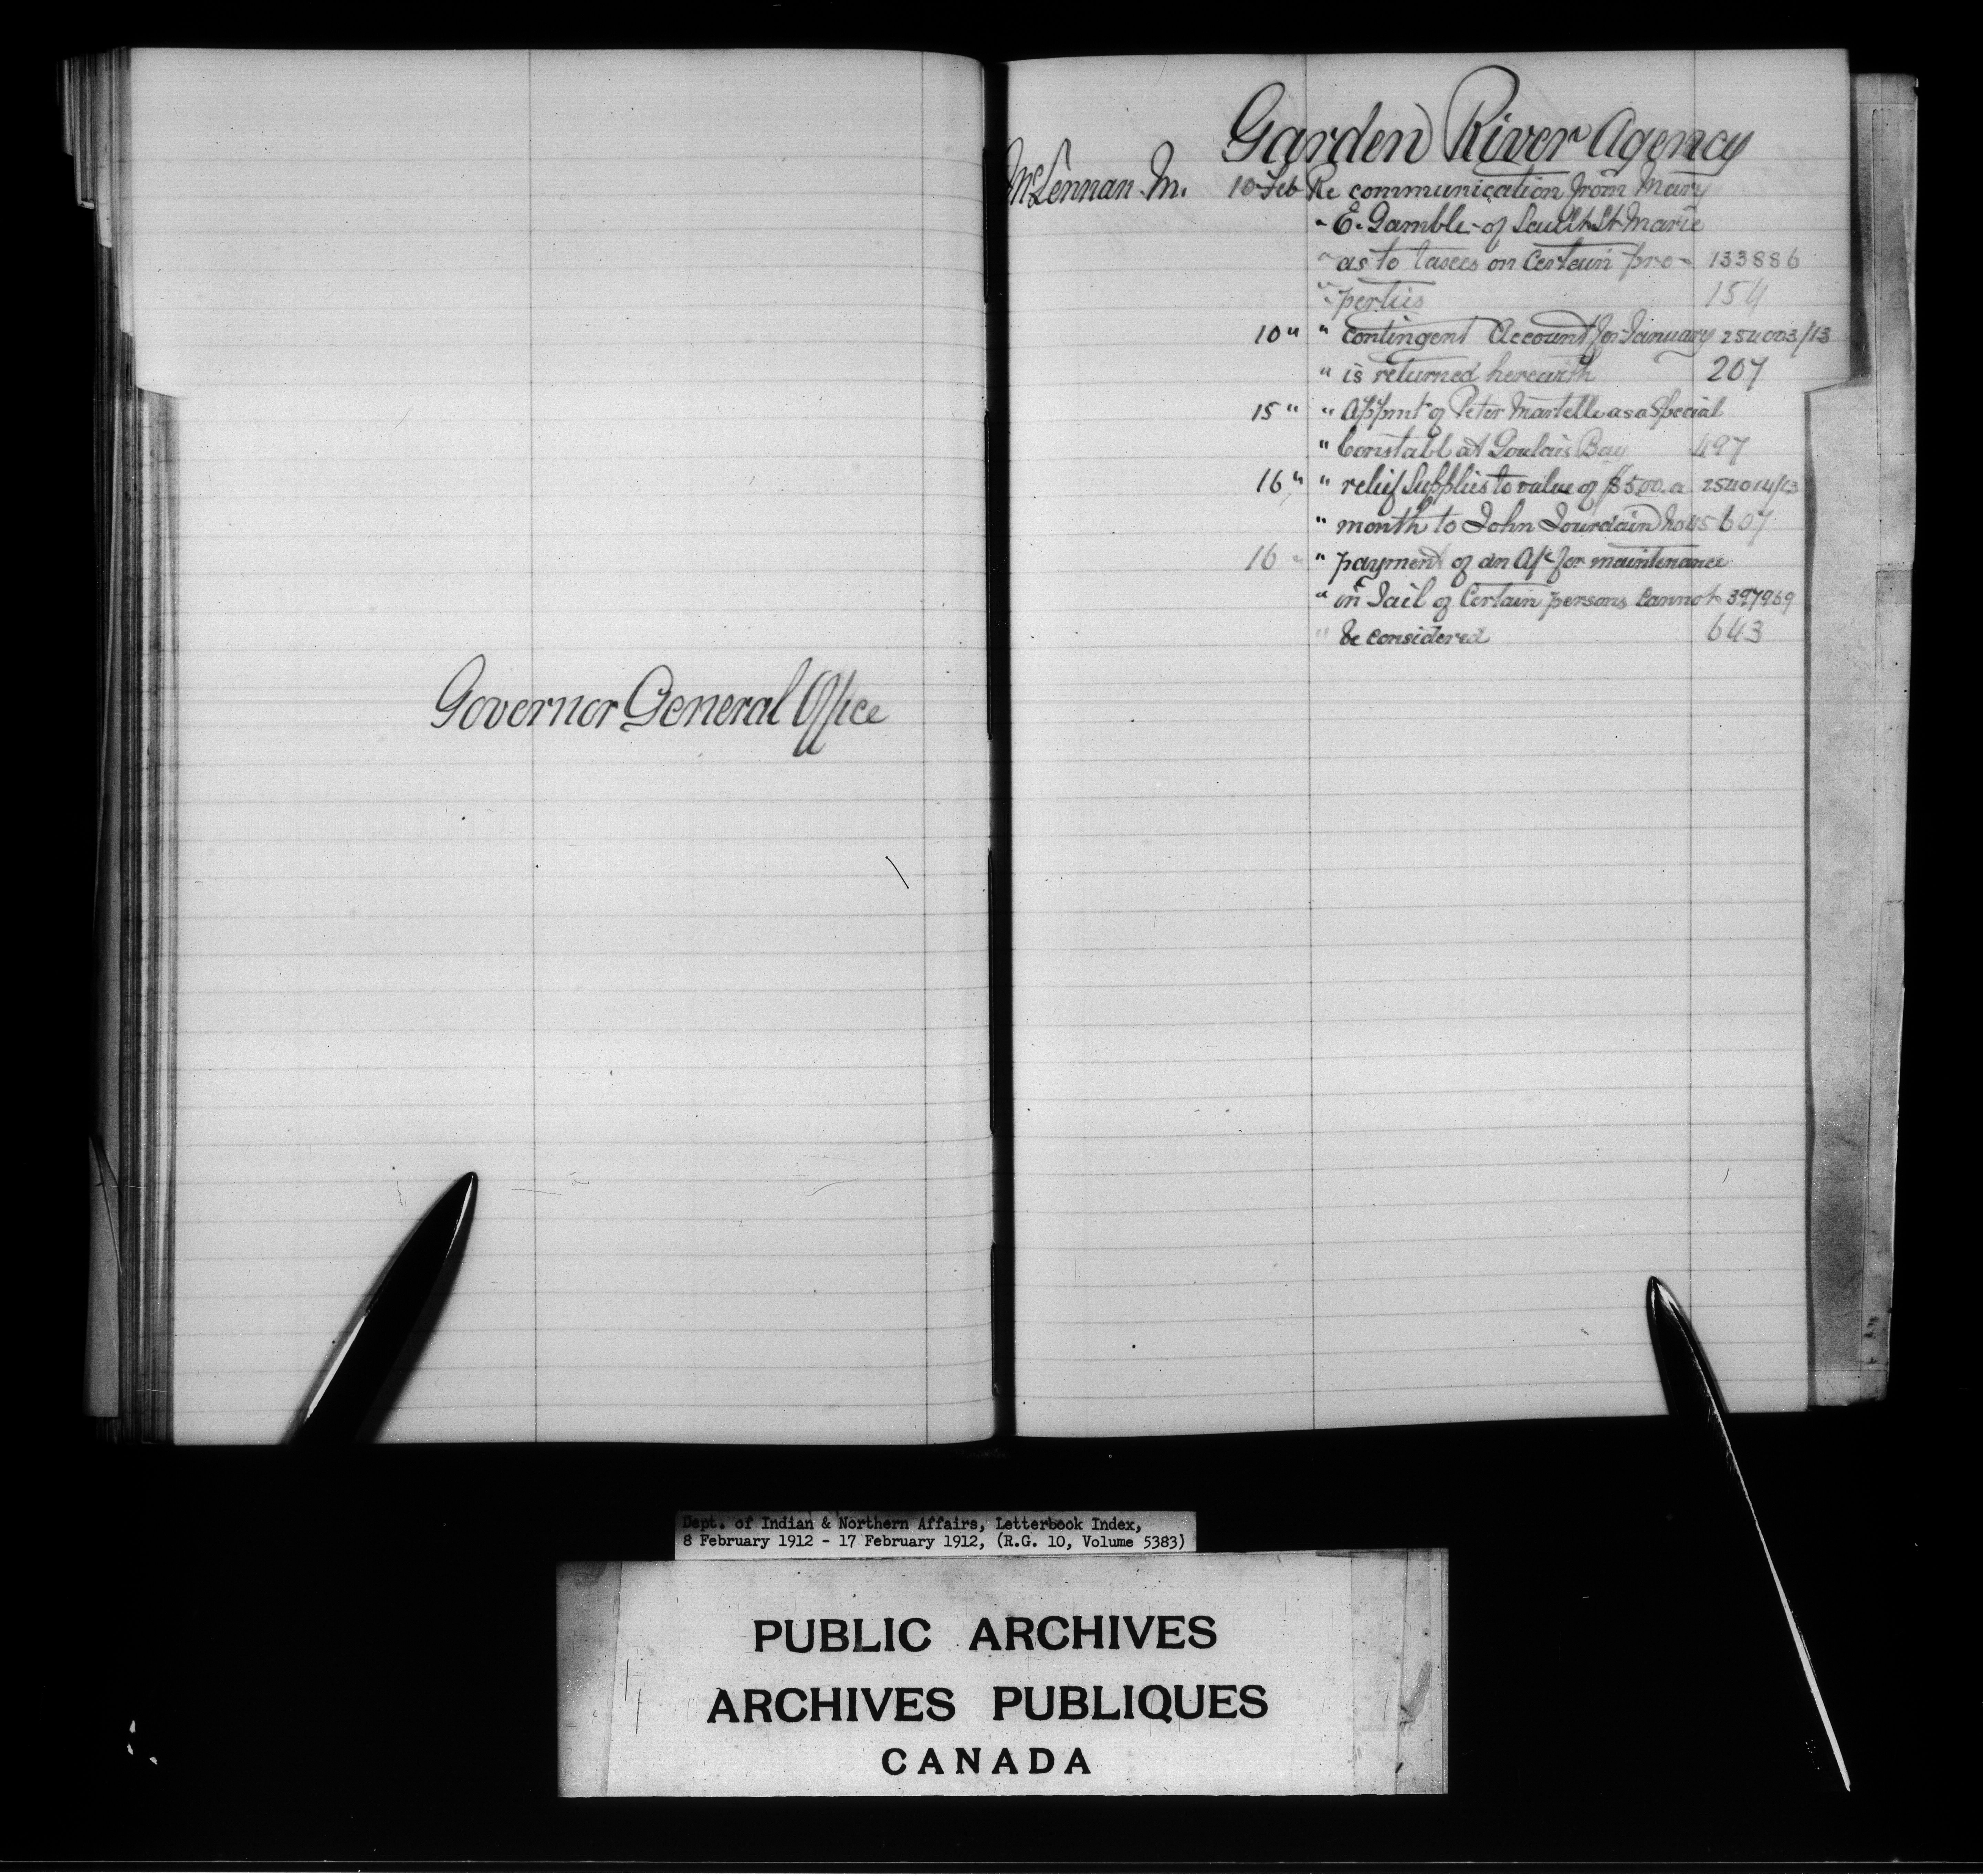 Governor General Office
Garden River Agency
McLennan M. 10 Feb Re communication from Mary
" E. Gamble of Sault St Marie
" as to taxes on Certain pro- 133886
" perties 154
10 " " Contingent Account for January 254003/13
" is returned herewith 207
15 " " Appmt of Peter Martelle as a Special
" Constabl at Goulais Bay 497
16 " " relief Supplies to value of $5.00 a 254014/13
" month to John Jourdain 607
16 " " payment of an A/c for maintenance
" in Jail of Certain persons Cannot 397969
" be considered 643
Dept. of Indian & Northern Affairs, Letterbook Index,
8 February 1912 - 17 February 1912, (R.G. 10, Volume 5383)
PUBLIC ARCHIVES
ARCHIVES PUBLIQUES
CANADA